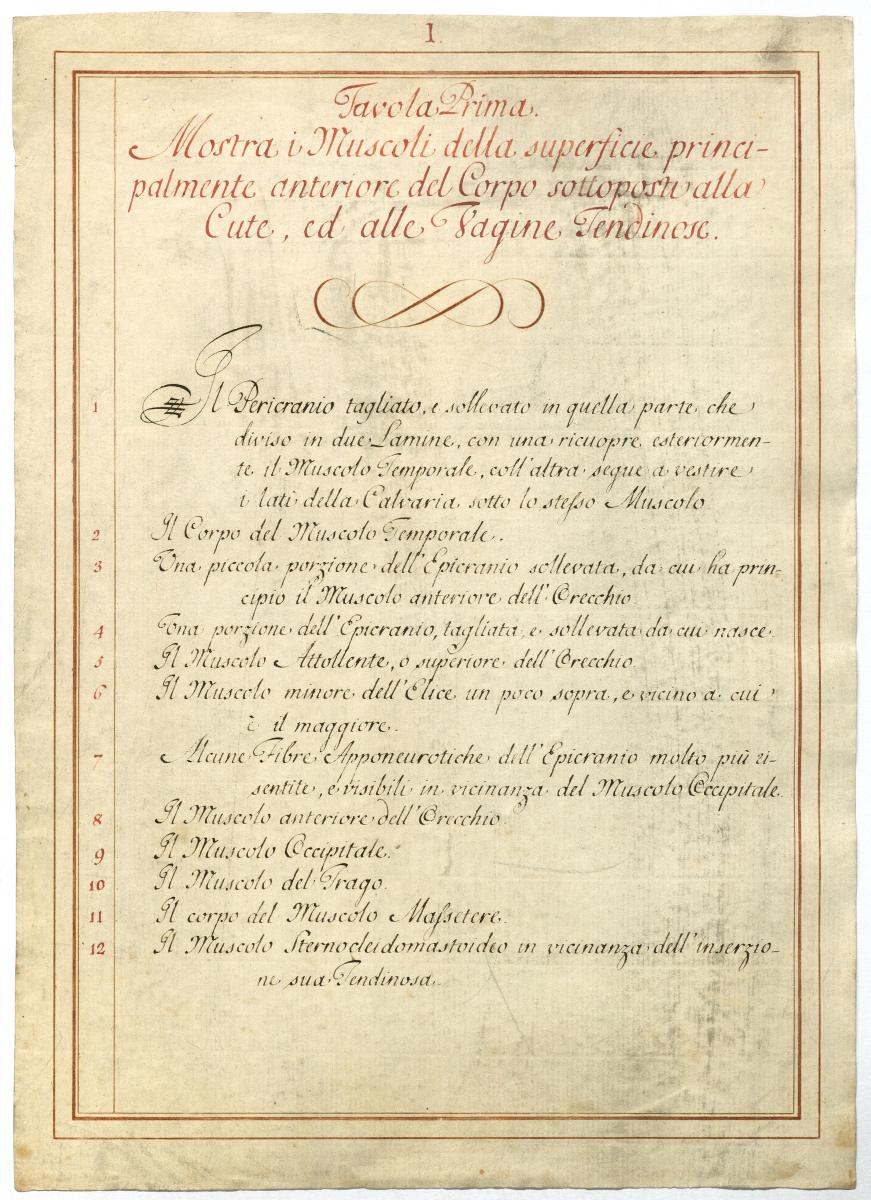 I.
Tavola Prima.
Mostra i Muscoli della superficie princi-
palmente anteriore del Corpo sottoposti alla
Cute, ed alle Vagine Tendinose.
1 Il Pericranio tagliato, e sollevato in quella parte che
diviso in due Lamine, con una ricuopre esteriormen-
te il Muscolo Temporale, coll'altra segue a vestire
i lati della Calvaria sotto lo stesso Muscolo
2 Il Corpo del Muscolo Temporale.
3 Una piccola porzione dell'Epicranio sollevata, da cui ha prin-
cipio il Muscolo anteriore dell'Orecchio
4 Una porzione dell'Epicranio, tagliata, e sollevata da cui nasce
5 Il Muscolo Attollente, o superiore dell'Orecchio
6 Il Muscolo minore dell'Elice un poco sopra, e vicino a cui
è il maggiore.
7 Alcune Fibre Apponeurotiche dell'Epicranio molto più ri-
sentite, e visibili in vicinanza del Muscolo Occipitale.
8 Il Muscolo anteriore dell'Orecchio
9 Il Muscolo Occipitale.
10 Il Muscolo del Trago.
11 Il corpo del Muscolo Massetere.
12 Il Muscolo Sternocleidomastoideo in vicinanza dell'inserzio-
ne sua Tendinosa.